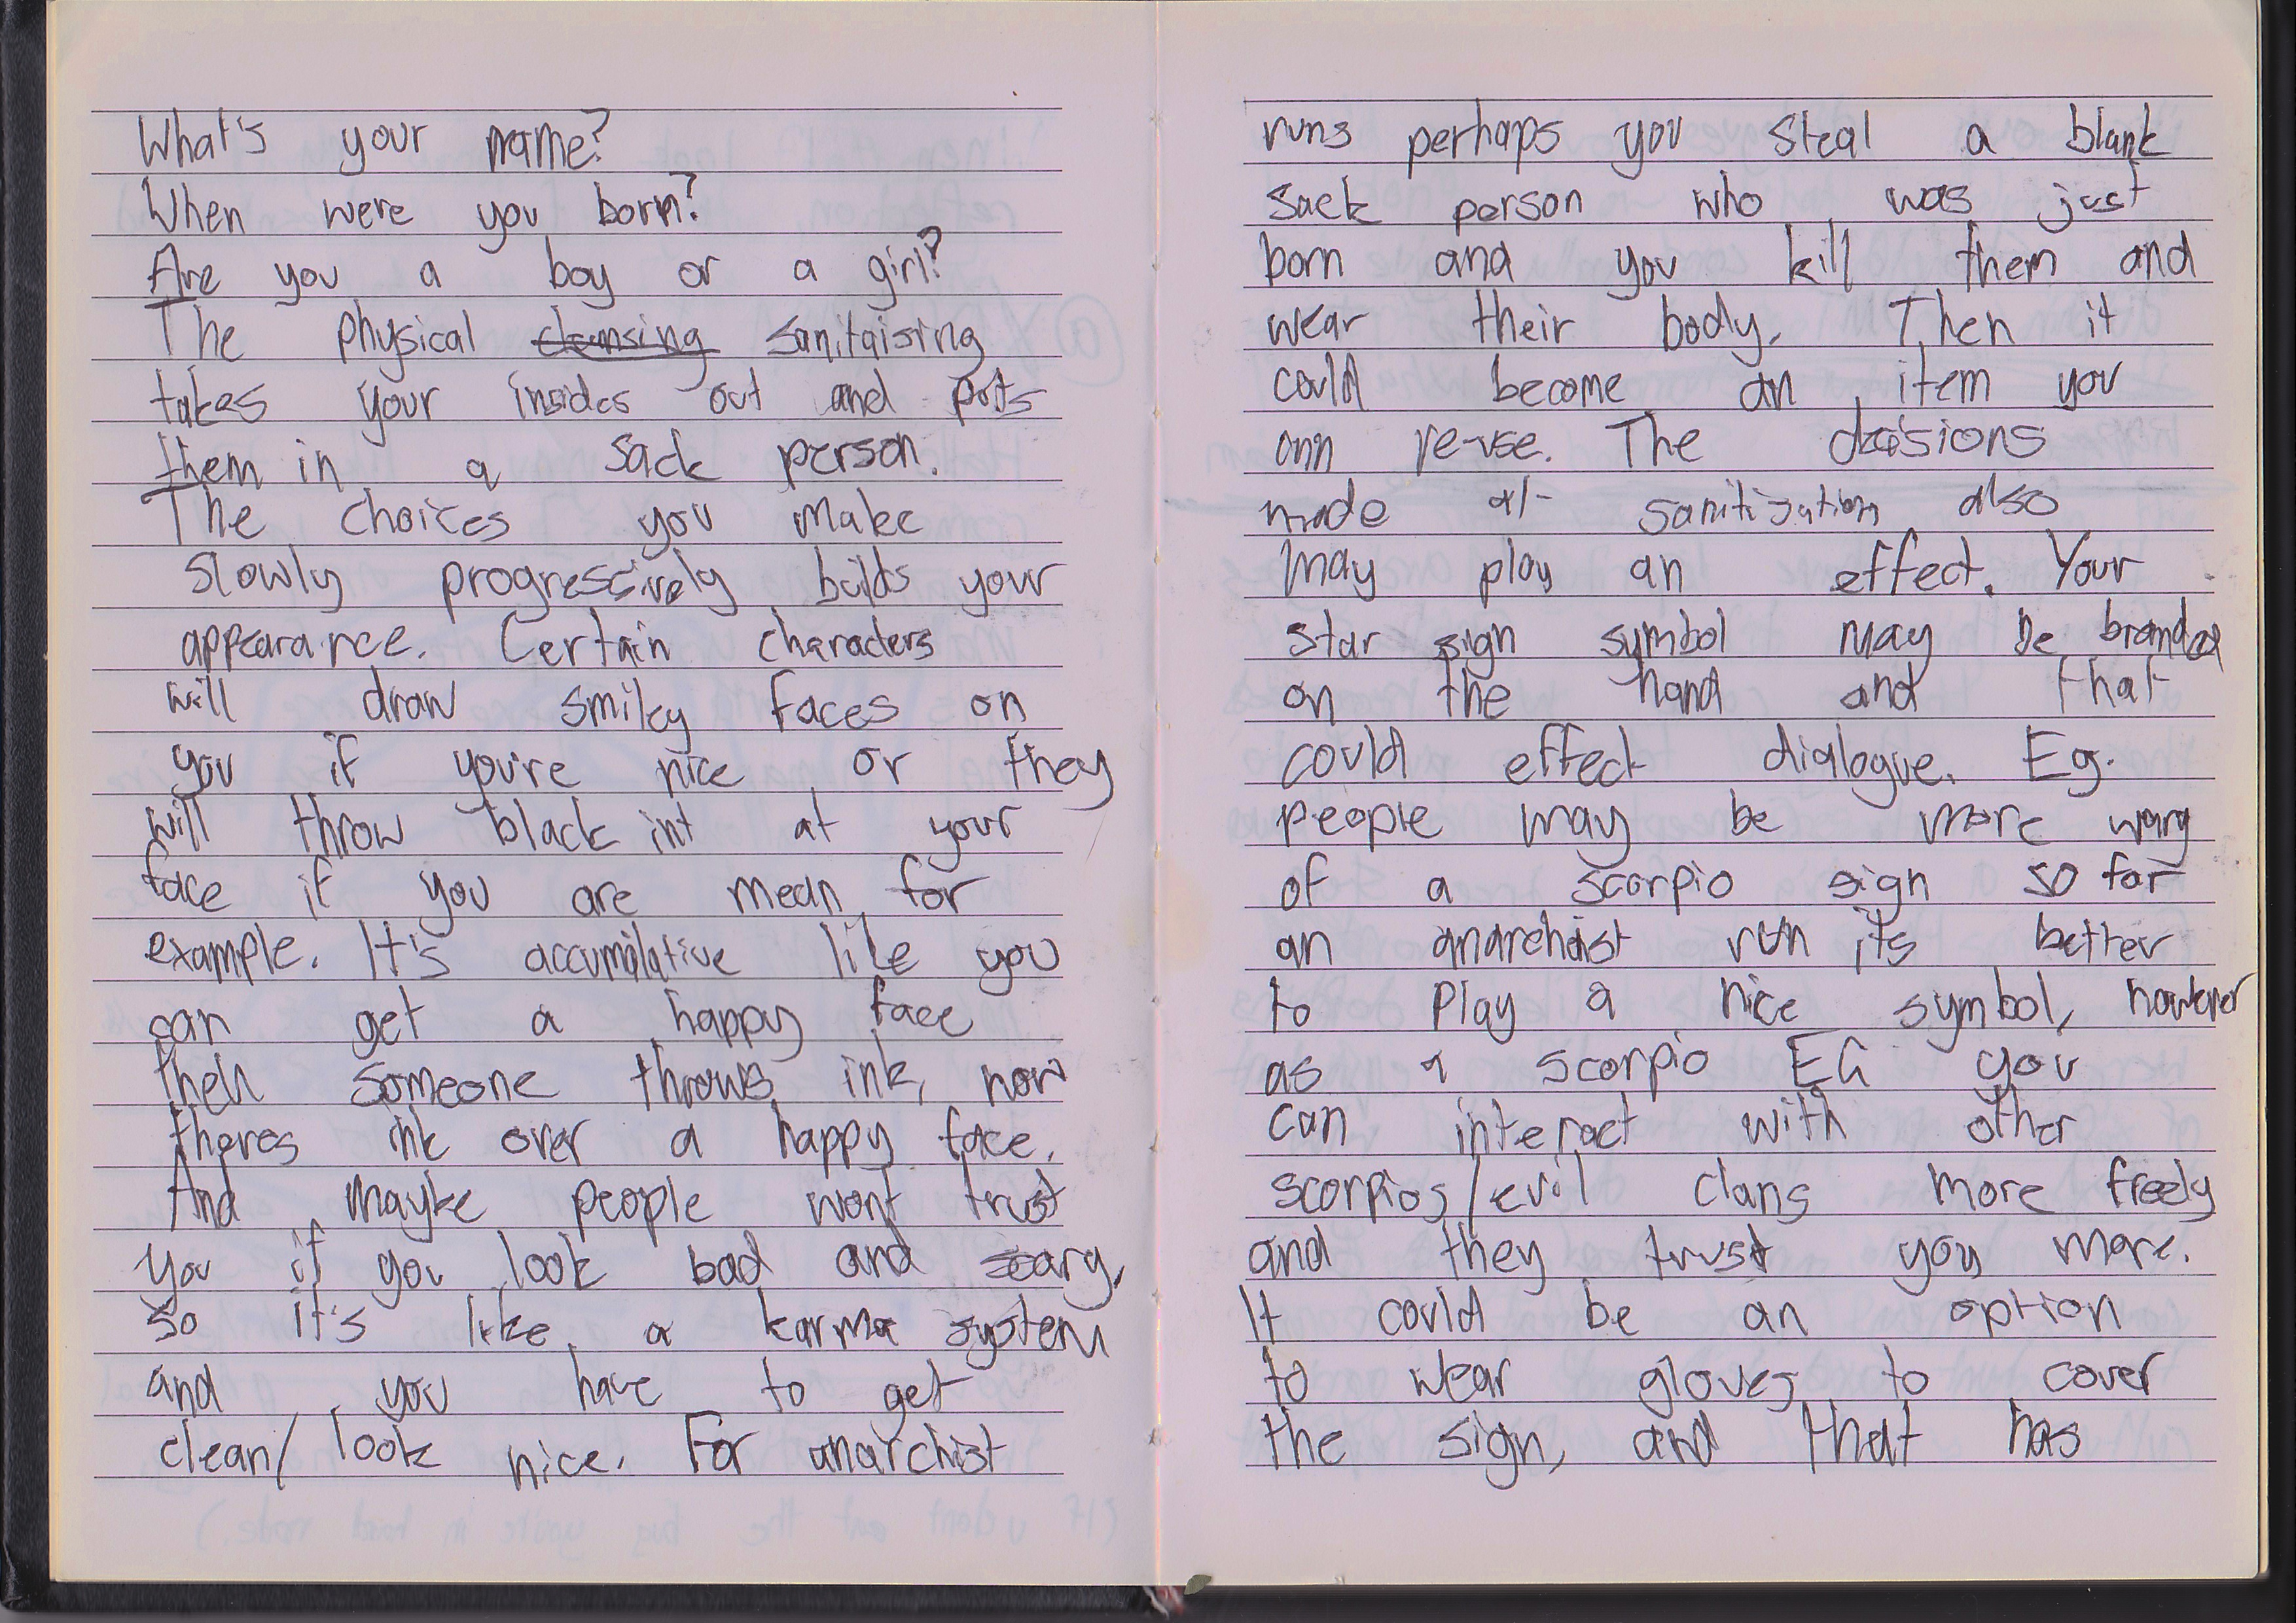 What's your name?
When were you born?
Are you a boy or a girl?
The physical cleansing sanitaising
takes your insides out and puts
them in a sack person.
The choices you make
slowly progressively builds your
appearance. Certain characters
will draw smiley faces on
you if you're nice or they
will throw black int at your
face if you are mean for
example. It's accumulative like you
can get a happy face
then someone throws ink, now
theres ink over a happy face.
And mayke people wont trust
you if you look bad and scary,
so it's like a karma system
and you have to get
clean/look nice. For anarchist
runs perhaps you steal a blank
sack person who was just
born and you kill them and
wear their body. Then it
could become an item you
ann re-use. The decisions
made at sanitization also
may play an effect. Your
star sign symbol may be branded
on the hand and that
could effect dialogue. Eg.
people may be more wary
of a scorpio sign so for
an anarchist run its better
to play a nice symbol, however
as a scorpio EG you
can interact with other
scorpios/evil clans more freely
and they trust you more.
It could be an option
to wear gloves to cover
the sign, and that has